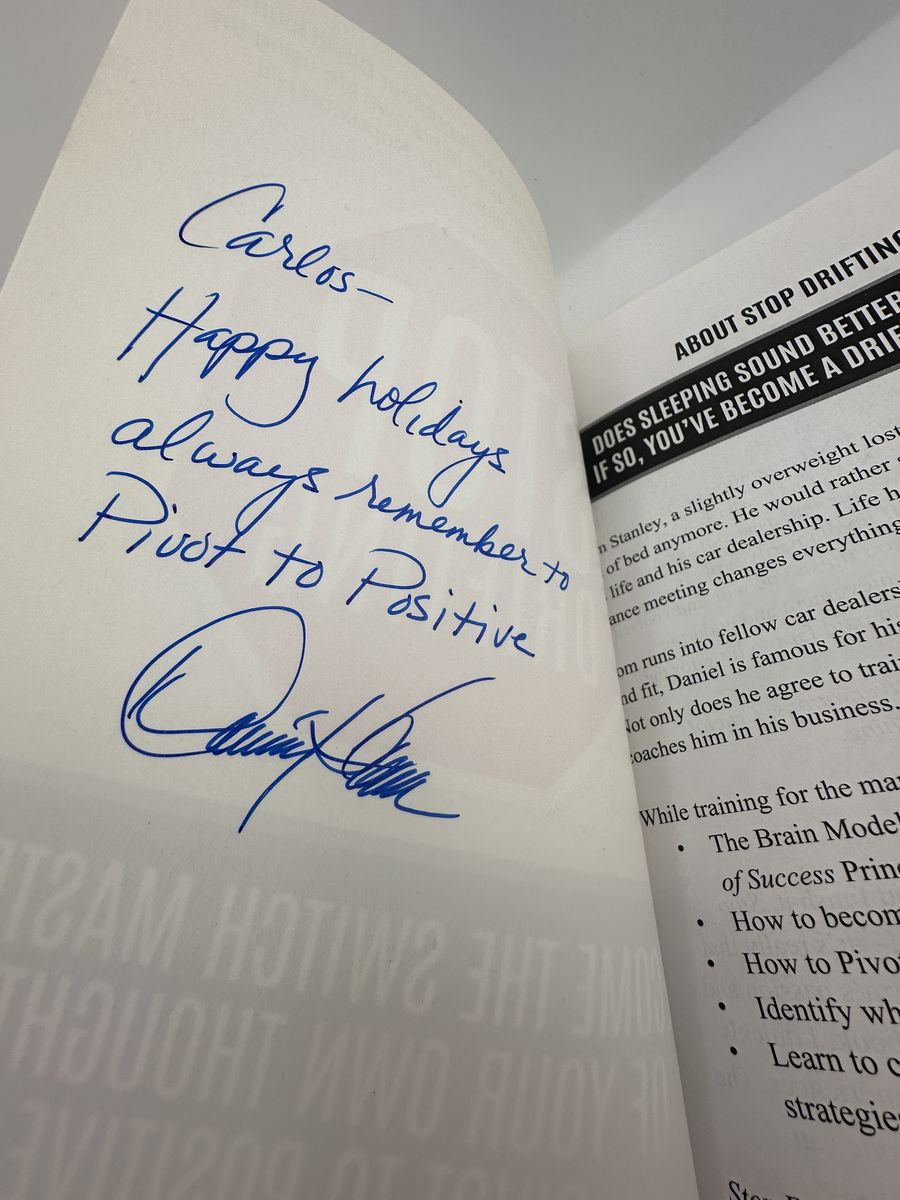 Carlos—
Happy holidays
always remember to
Pivot to Positive
ABOUT STOP DRIFTING
DOES SLEEPING SOUND BETTER
IF SO, YOU'VE BECOME A
Stanley, a slightly overweight lost
of bed anymore. He would rather
life and his car dealership. Life
meeting changes everything
runs into fellow car
fit, Daniel is famous for his
Not only does he agree to
coaches him in his business.
While training for the
• The Brain Model
of Success
• How to
• How to
• Identify
• Learn to
COME THE SWITCH
OF YOUR OWN
TO POSITIVE